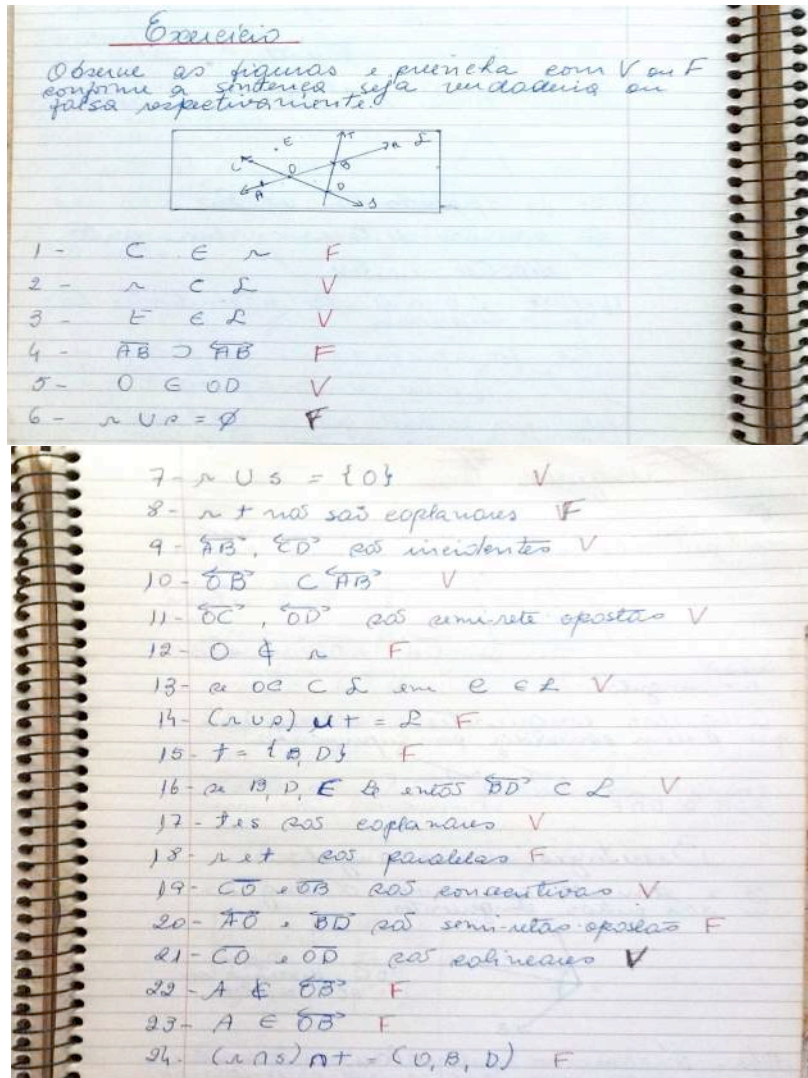 Exercício
Observe as figuras e preencha com V ou F
conforme a sentença seja verdadeira ou
falsa respectivamente.
E T r L
C O B
A D s
1 - C ∈ r F
2 - r ⊂ L V
3 - E ∈ L V
4 - AB ⊃ AB F
5 - O ∈ OD V
6 - r ∪ s = ∅ F
7 - r ∪ s = {O} V
8 - r t não são coplanares F
9 - AB, CD são incidentes V
10 - OB ⊂ AB V
11 - OC, OD são semi-reta opostas V
12 - O ∉ r F
13 - se OC ⊂ L em C ∈ L V
14 - (r ∪ s) ∪ t = L F
15 - t = {B, D} F
16 - se B, D, ∈ L então BD ⊂ L V
17 - t e s são coplanares V
18 - r e t são paralelas F
19 - CO e OB são consecutivas V
20 - AO e BD são semi-retas opostas F
21 - CO e OD são colineares V
22 - A ∉ OB F
23 - A ∈ OB F
24 - (r ∩ s) ∩ t = (O, B, D) F